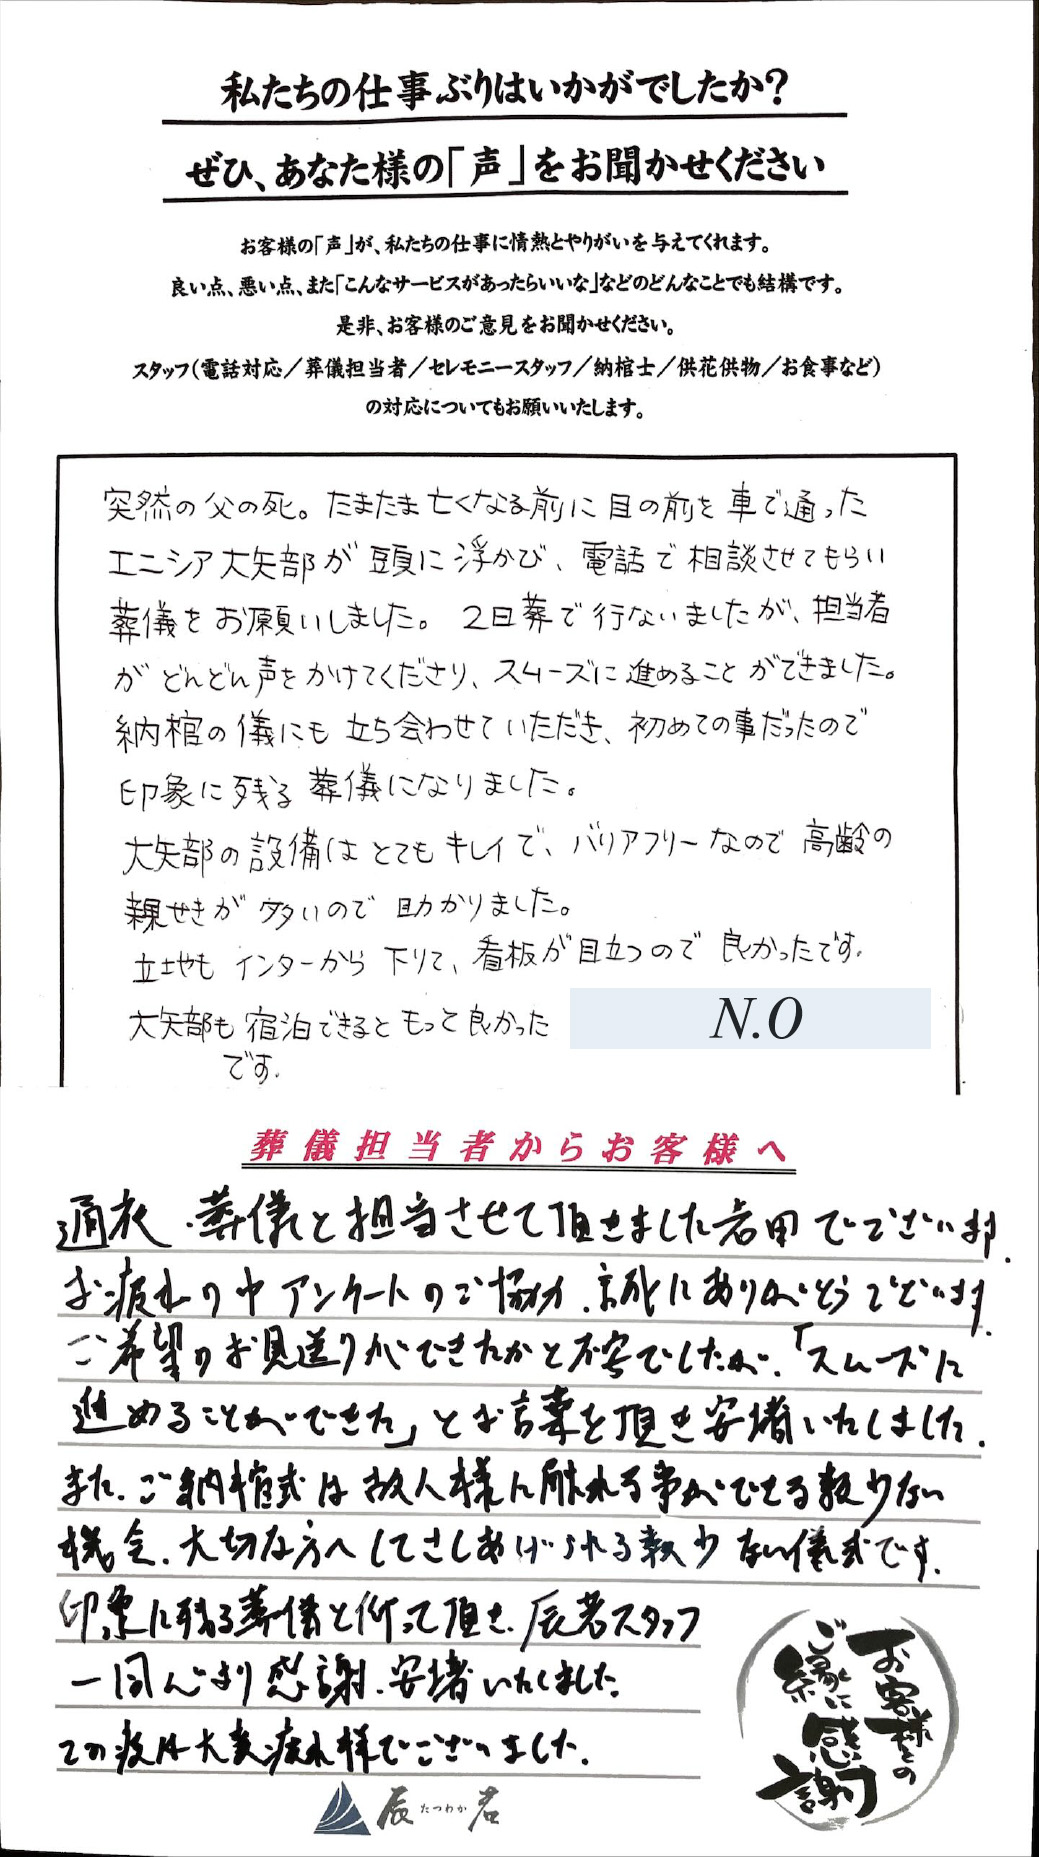 私たちの仕事ぶりはいかがでしたか?
ぜひ、あなた様の「声」をお聞かせください
お客様の「声」が、私たちの仕事に情熱とやりがいを与えてくれます。
良い点、悪い点、また「こんなサービスがあったらいいな」などのどんなことでも結構です。
是非、お客様のご意見をお聞かせください。
スタッフ(電話対応/葬儀担当者/セレモニースタッフ/納棺士/供花供物/お食事など)
の対応についてもお願いいたします。
突然の父の死。たまたま亡くなる前に目の前を車で通った
エニシア大矢部が頭に浮かび、電話で相談させてもらい
葬儀をお願いしました。2日葬で行ないましたが、担当者
がどんどん声をかけてくださり、スムーズに進めることができました。
納棺の儀にも立ち会わせていただき、初めての事だったので
印象に残る葬儀になりました。
大矢部の設備はとてもキレイで、バリアフリーなので高齢の
親せきが多いので助かりました。
立地もインターから下りて、看板が目立つので良かったです。
大矢部も宿泊できるともっと良かった
です。
N.O
葬儀担当者からお客様へ
過夜、葬儀を担当させて頂きました岩田でございます.
お疲れの中アンケートのご協力、誠にありがとうございます.
ご希望のお見送りができたかと不安でしたが、「スムーズに
進めることができた」とお言葉を頂き安堵いたしました.
また、ご納棺式は故人様に触れる事ができる数少ない
機会、大切な方へしてさしあげられる数少ない儀式です.
印象に残る葬儀と仰って頂き、辰若スタッフ
一同心より感謝、安堵いたしました.
この度は大変お疲れ様でございました.
お客様との
ご縁に
感謝
辰たつわか若